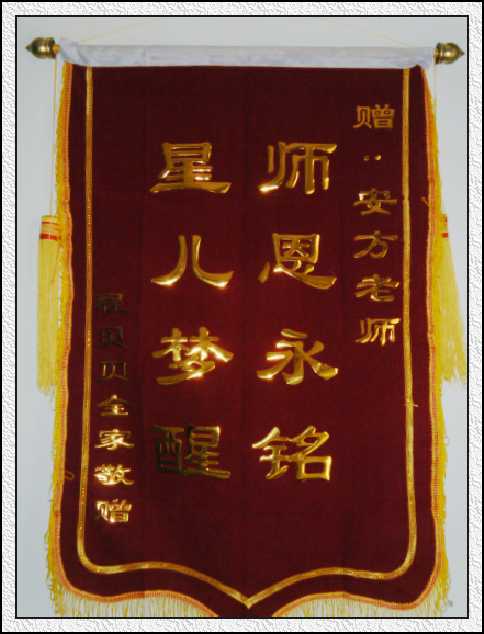 赠：安方老师
师恩永铭
星儿梦醒
贝全家敬赠